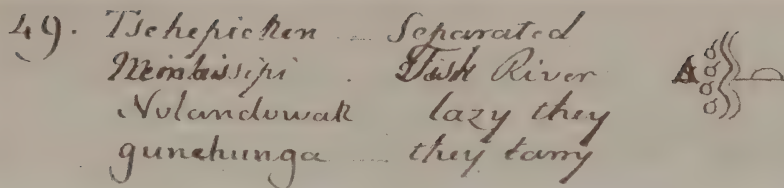 49. Tschepicken - Separated
Nemassipi . Fish River
Nolandowak lazy they
gunehunga - they tarry